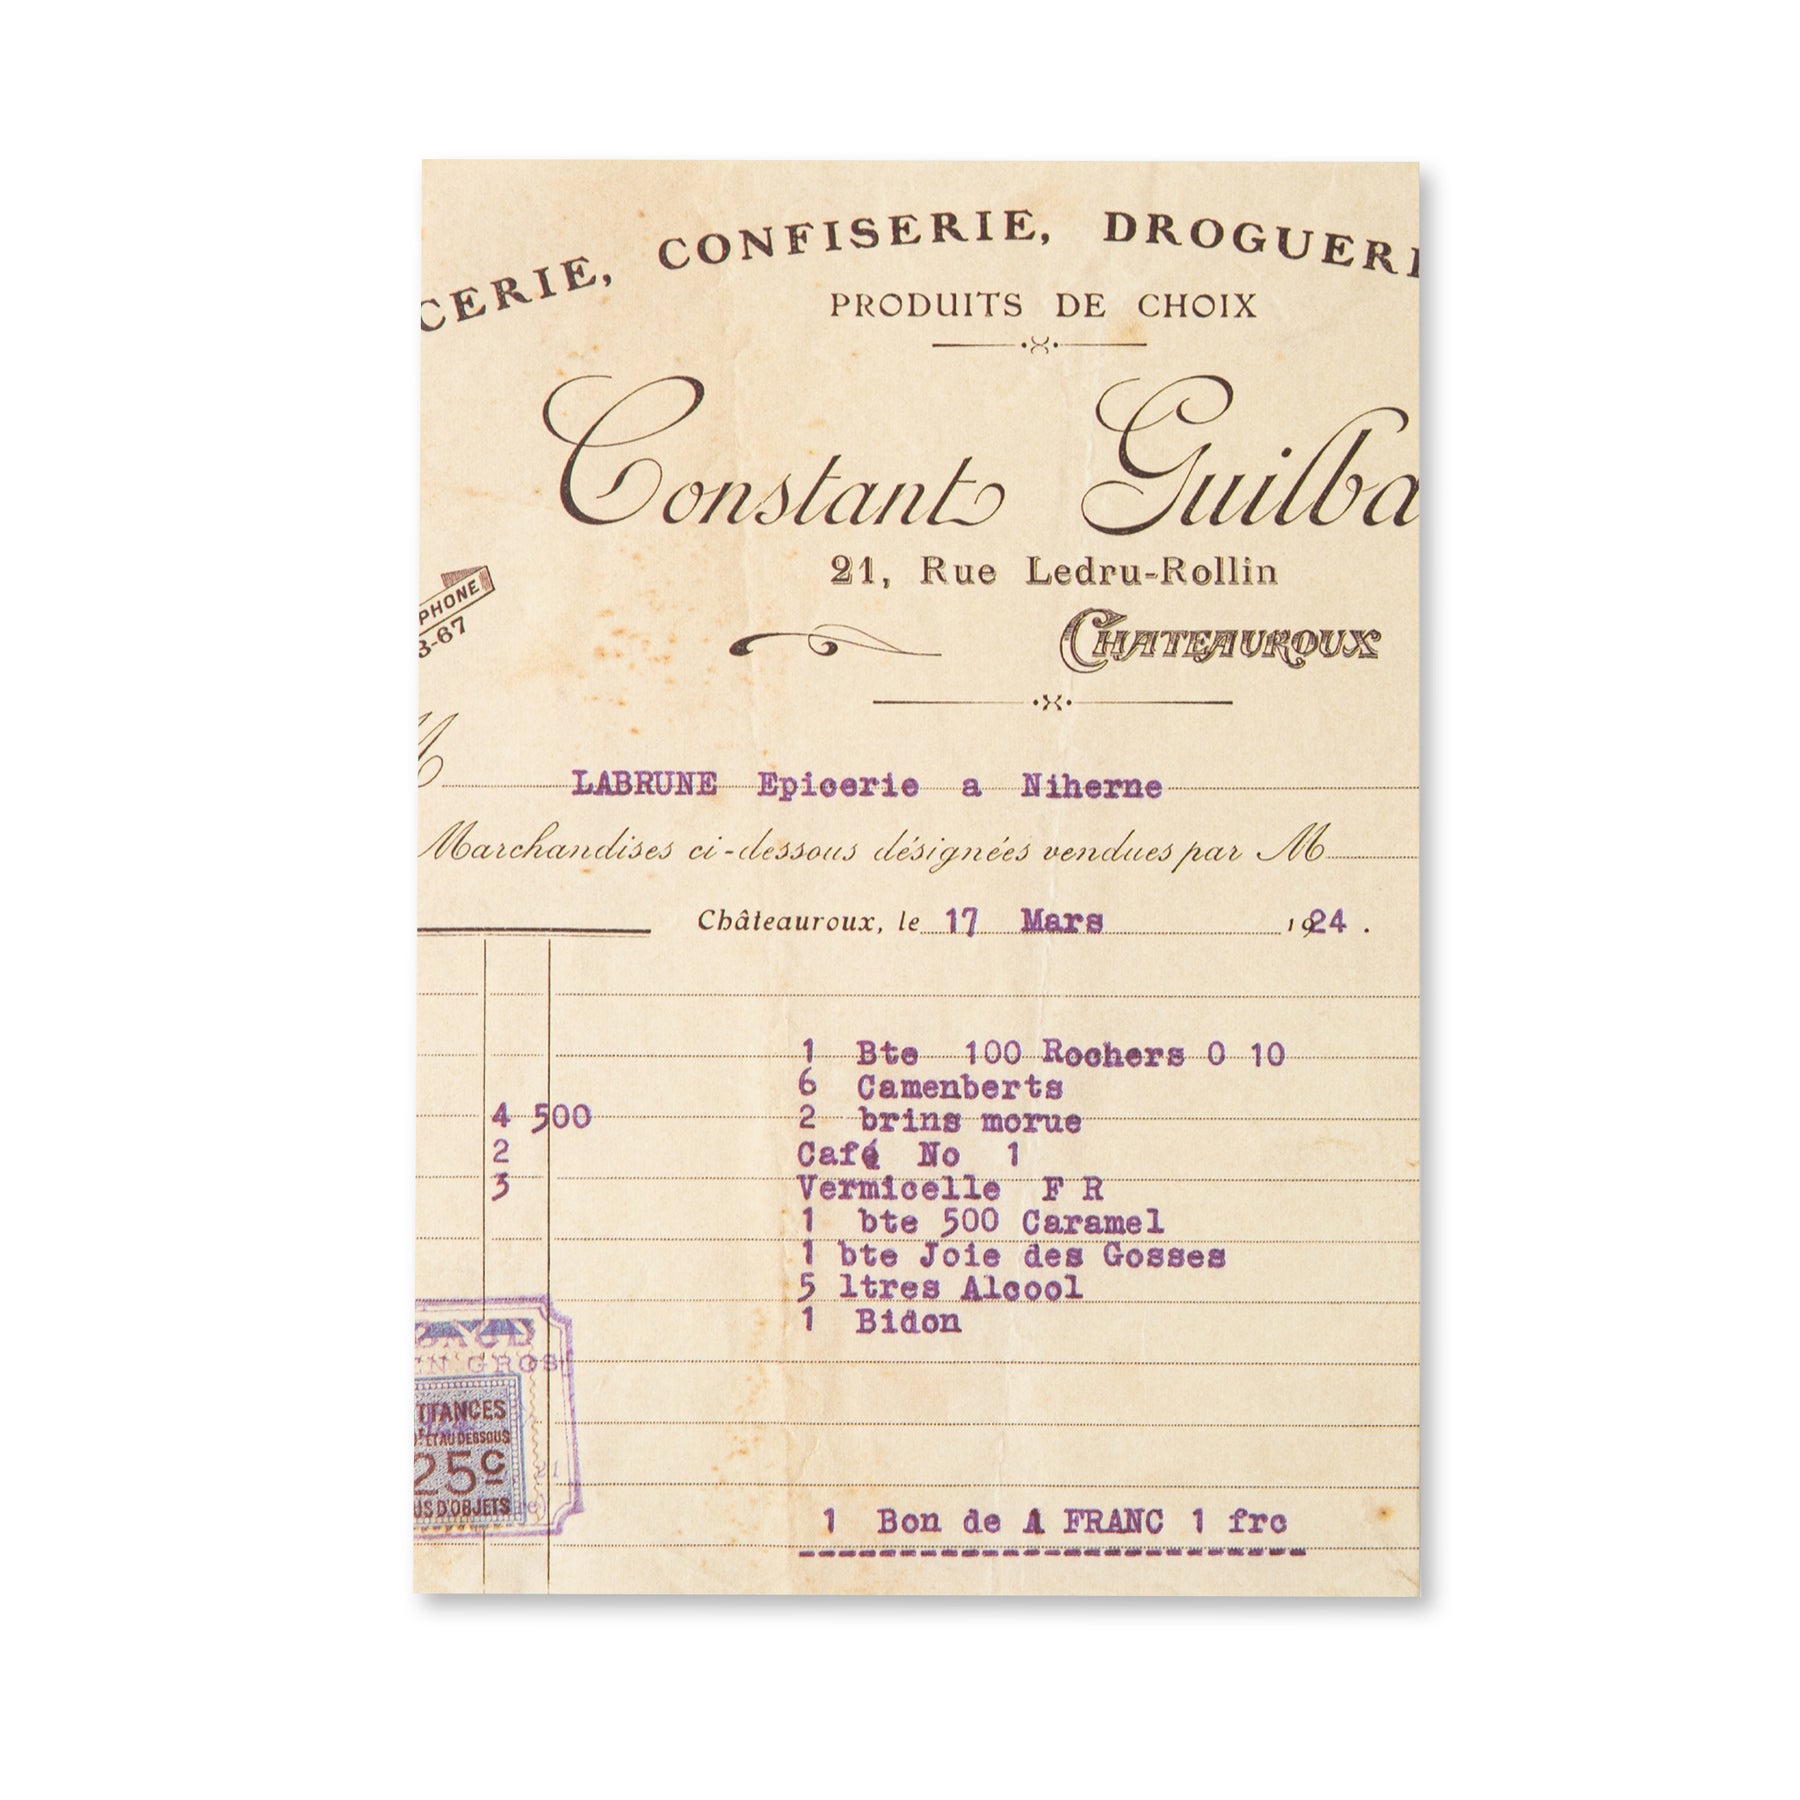 CERIE, CONFISERIE, DROGUERI
PRODUITS DE CHOIX
Constant Guilba
21, Rue Ledru-Rollin
CHATEAUROUX
PHONE
3-67
M LABRUNE Epicerie a Niherne
Marchandises ci-dessous désignées vendues par M
Châteauroux, le 17 Mars 1924 .
1 Bte 100 Rochers 0 10
6 Camenberts
4 500 2 brins morue
2 Café No 1
3 Vermicelle F R
1 bte 500 Caramel
1 bte Joie des Gosses
5 ltres Alcool
1 Bidon
EN GROS
TTANCES
ET AU DESSOUS
25c
US D'OBJETS
1 Bon de 1 FRANC 1 frc